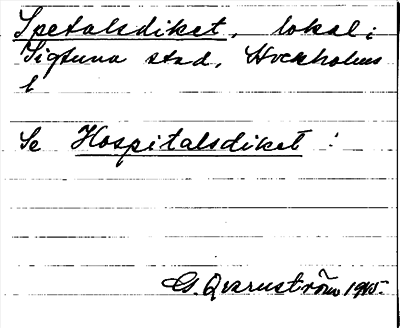 Spetalsdiket, lokal i
Sigtuna stad, Stockholms
l
Se Hospitalsdiket!
G. Qvarnström 1945.